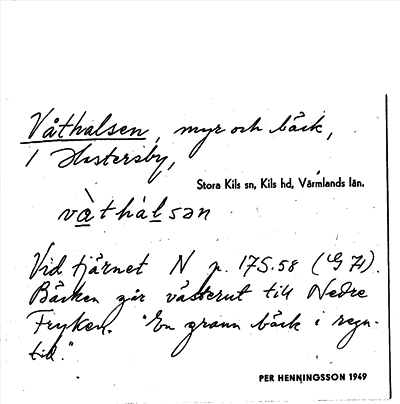 Våthalsen, myr och bäck,
i Hostersby,
Stora Kils sn, Kils hd, Värmlands län.
vàthàlsən
Vid tjärnet N p. 175.58 (G 71).
Bäcken går västerut till Nedre
Fryken. "En grann bäck i regn-
tid."
PER HENNINGSSON 1949